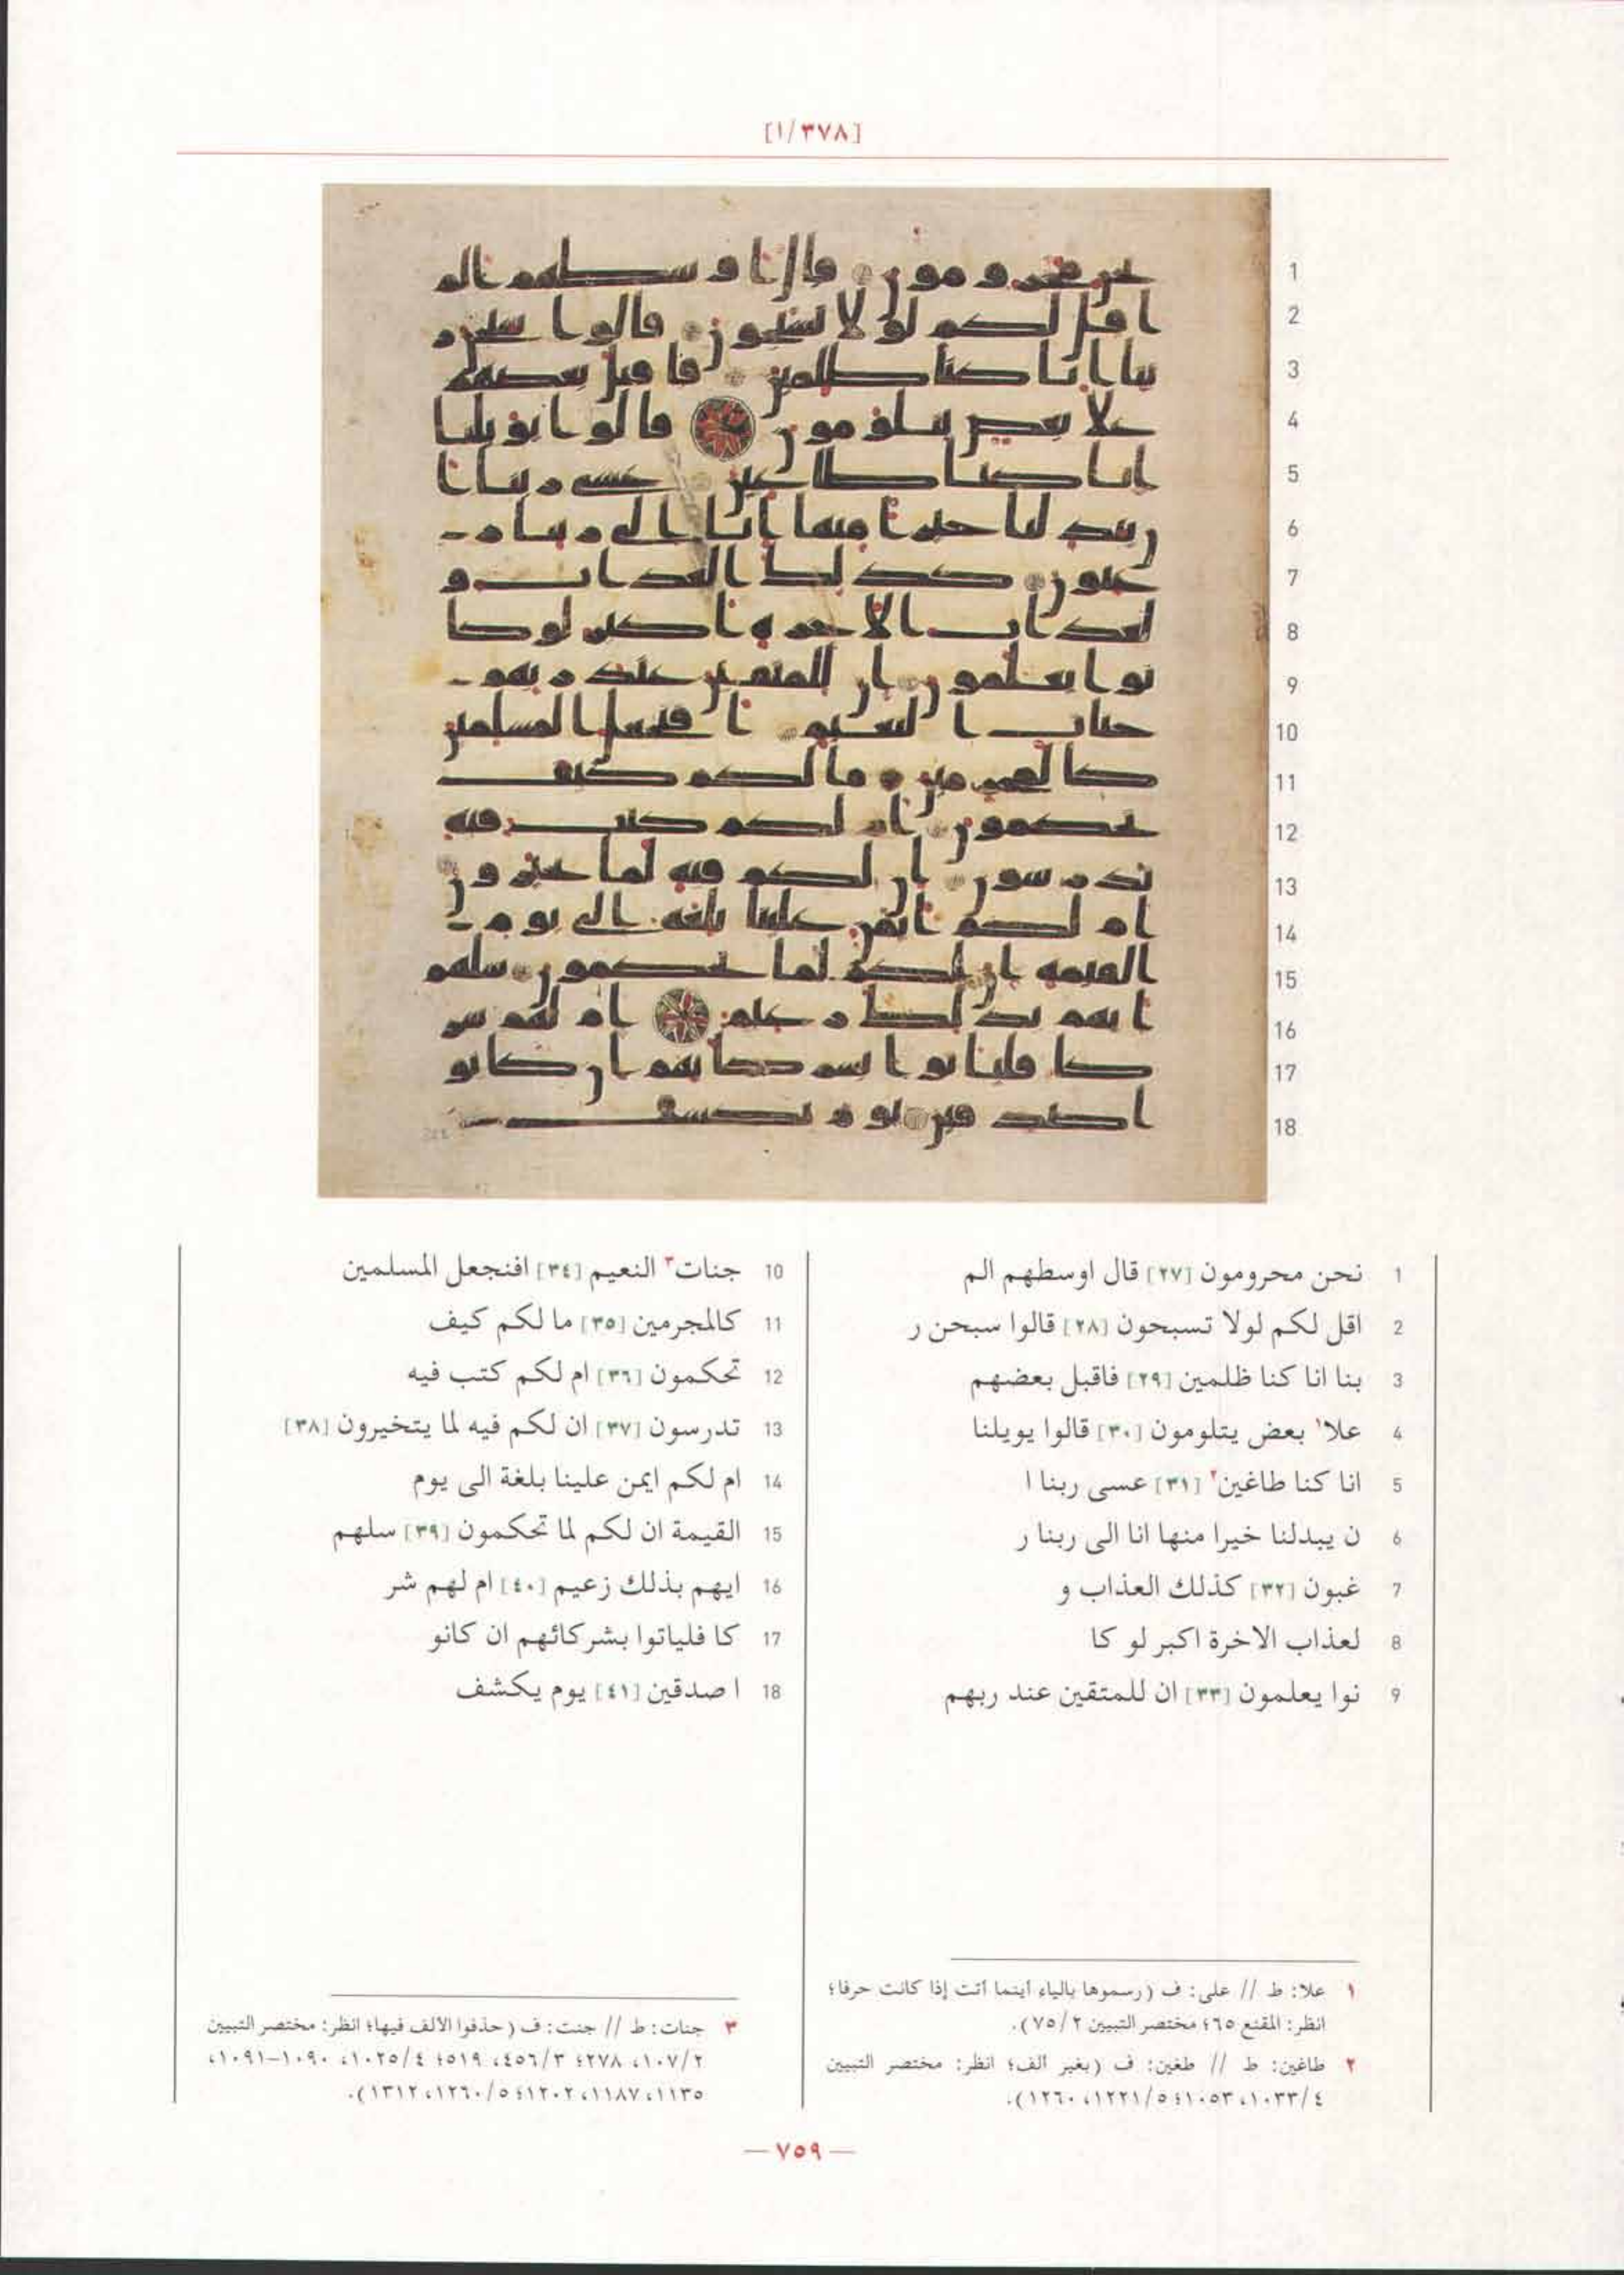 [٣٧٨/١]
1 نحن محرومون [٢٧] قال اوسطهم الم
2 اقل لكم لولا تسبحون [٢٨] قالوا سبحن ر
3 بنا انا كنا ظلمين [٢٩] فاقبل بعضهم
4 علا١ بعض يتلومون [٣٠] قالوا يويلنا
5 انا كنا طاغين٢ [٣١] عسى ربنا ا
6 ن يبدلنا خيرا منها انا الى ربنا ر
7 غبون [٣٢] كذلك العذاب و
8 لعذاب الاخرة اكبر لو كا
9 نوا يعلمون [٣٣] ان للمتقين عند ربهم
10 جنات٣ النعيم [٣٤] افنجعل المسلمين
11 كالمجرمين [٣٥] ما لكم كيف
12 تحكمون [٣٦] ام لكم كتب فيه
13 تدرسون [٣٧] ان لكم فيه لما يتخيرون [٣٨]
14 ام لكم ايمن علينا بلغة الى يوم
15 القيمة ان لكم لما تحكمون [٣٩] سلهم
16 ايهم بذلك زعيم [٤٠] ام لهم شر
17 كا فلياتوا بشركائهم ان كانو
18 ا صدقين [٤١] يوم يكشف
١ علا: ط // على: ف (رسموها بالياء أينما أتت إذا كانت حرفا؛
انظر: المقنع ٦٥؛ مختصر التبيين ٧٥/٢).
٢ طاغين: ط // طغين: ف (بغير ألف؛ انظر: مختصر التبيين
١٠٣٣/٤، ١٠٥٣؛ ١٢٢١/٥، ١٢٦٠).
٣ جنات: ط // جنت: ف (حذفوا الألف فيها؛ انظر: مختصر التبيين
١٠٧/٢، ٢٧٨؛ ٤٥٦/٣، ٥١٩؛ ١٠٢٥/٤، ١٠٩٠–١٠٩١،
١١٣٥، ١١٨٧، ١٢٠٢؛ ١٢٦٠/٥، ١٣١٢).
— ٧٥٩ —